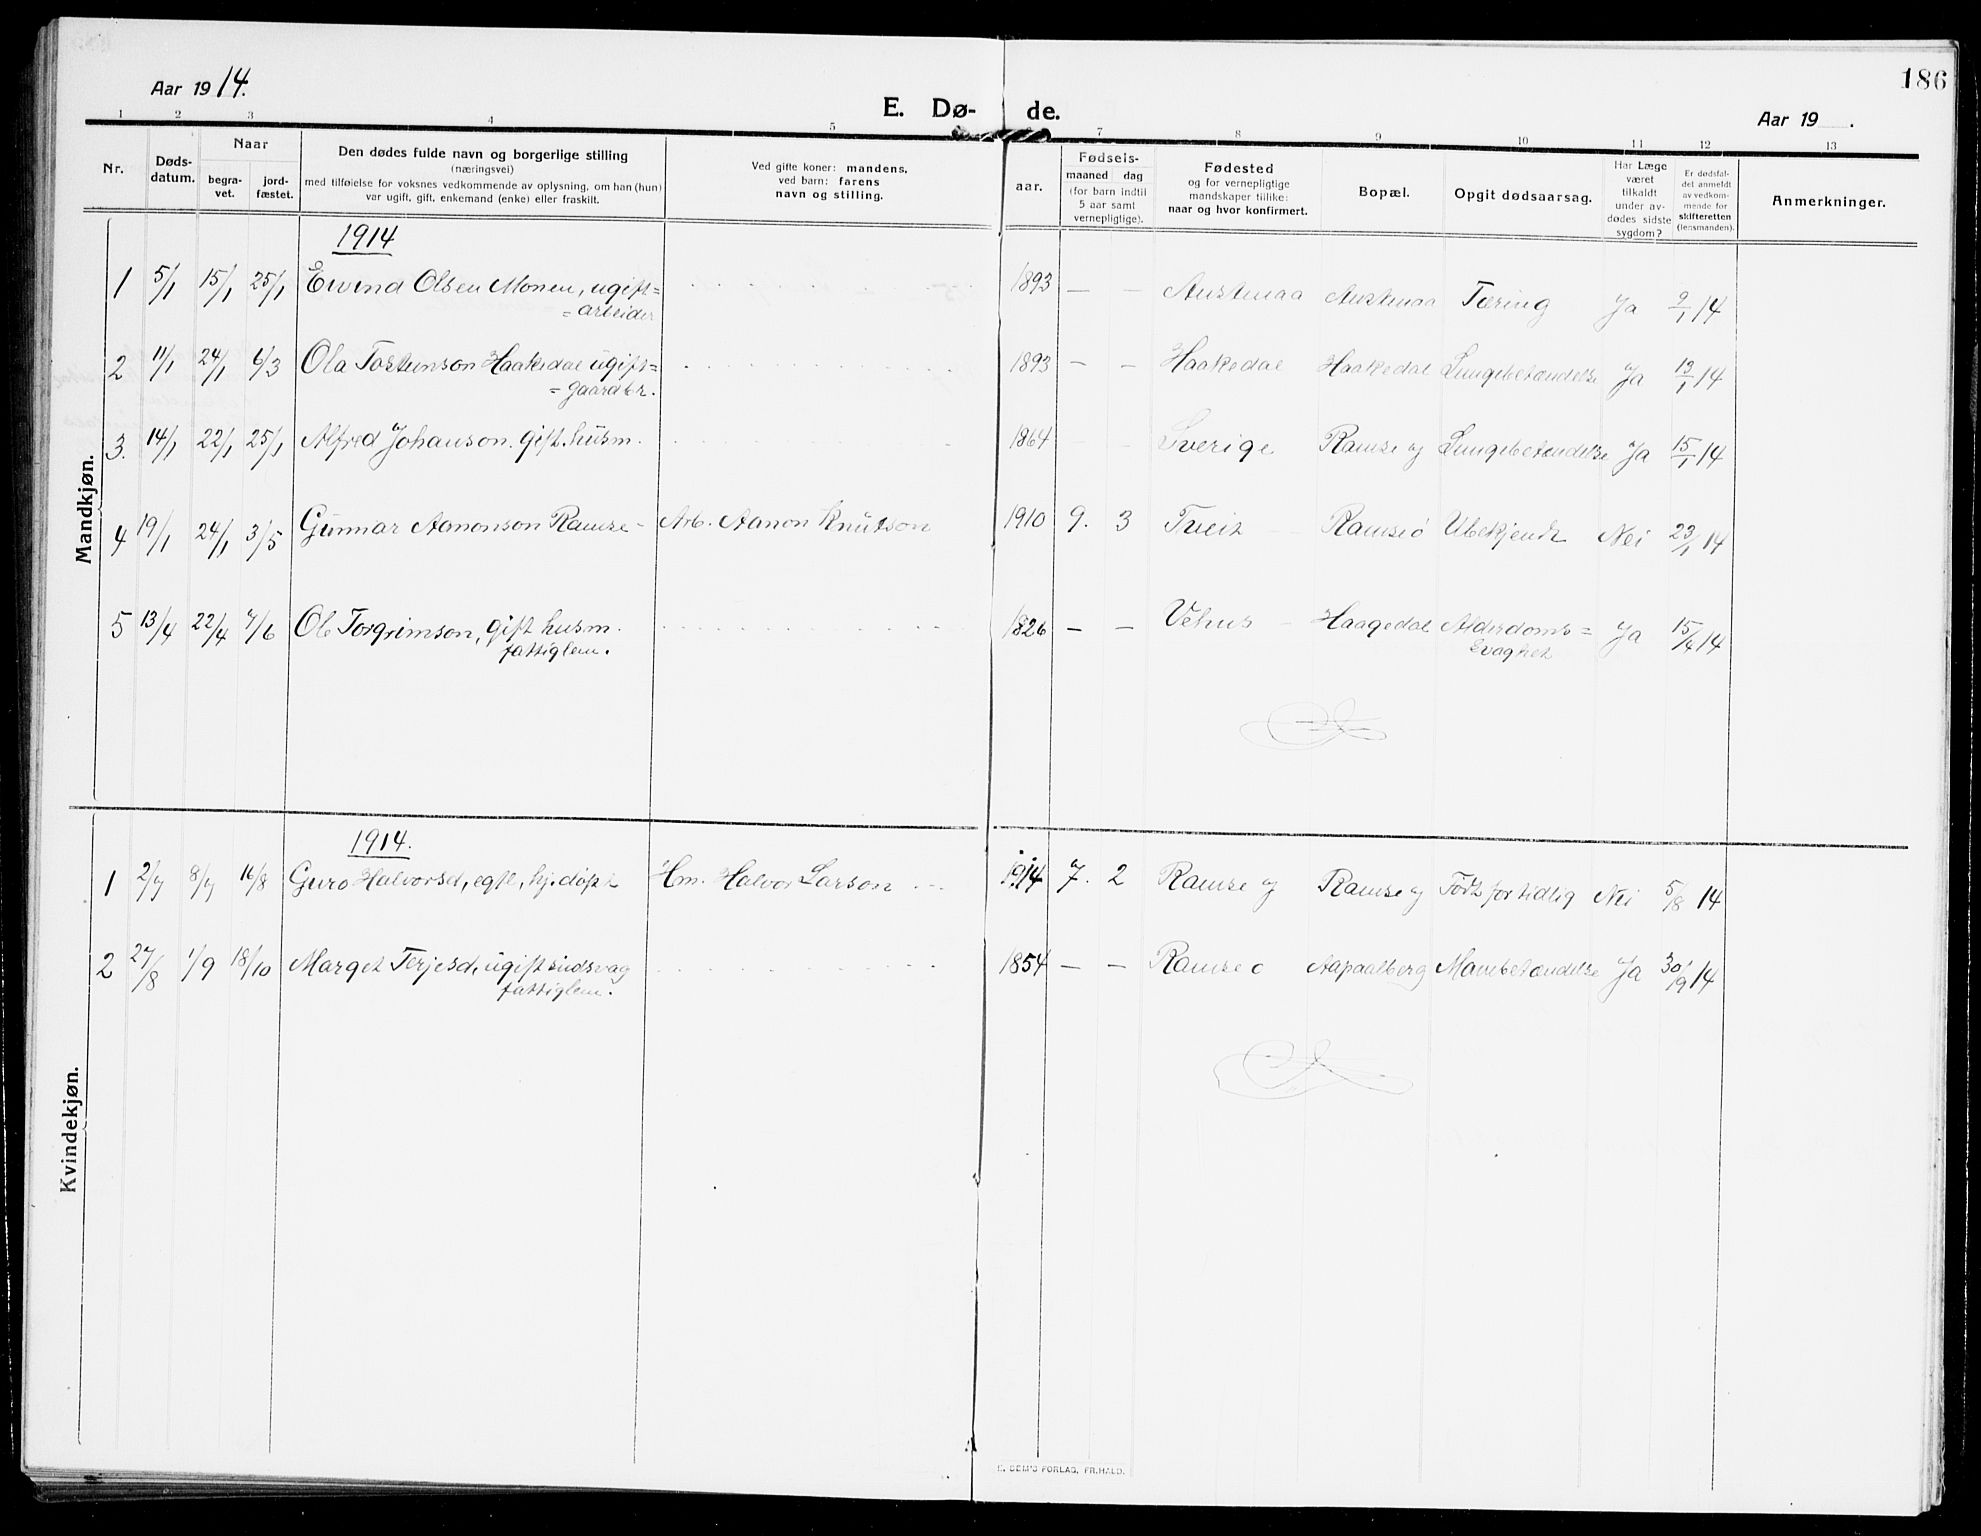 186
Aar 1914.
E. Dø- de.
Aar 19 .
1 2 3 4 5 7 8 9 10 11 12 13
Nr.
Døds-
datum.
Naar
begra-
vet.
jord-
fæstet.
Den dødes fulde navn og borgerlige stilling
(næringsvei)
med tilføielse for voksnes vedkommende av oplysning, om han (hun)
var ugift, gift, enkemand (enke) eller fraskilt.
Ved gifte koner: mandens,
ved barn: farens
navn og stilling.
aar.
Fødsels-
maaned dag
(for barn indtil
5 aar samt
vernepligtige).
Fødested
og for vernepligtige
mandskaper tillike:
naar og hvor konfirmert.
Bopæl.
Opgit dødsaarsag.
Har Læge
været
tilkaldt
under av-
dødes sidste
sygdom?
Er dødsfal-
det anmeldt
av vedkom-
mende for
skifteretten
(lensmanden).
Anmerkninger.
Mandkjøn.
1914
1 5/1 15/1 25/1 Eivind Olsen Monen, ugift= 1893 — — Austenaa Austenaa Tæring Ja 9/1 14
= arbeider
2 11/1 24/1 6/3 Ola Tostenson Haakedal ugift= 1893 — — Haakedal Haakedal Lungebetændelse Ja 13/1 14
= gaardbr.
3. 14/1 22/1 25/1 Alfred Johanson. gift. husm. 1864 — — Sverige Ramse ø Lungebetændelse Ja 15/1 14
4 19/1 24/1 3/5 Gunnar Aanonson Ramse - Arb. Aanon Knutson 1910 9. 3 Tveit Ramseø Ubekjendt Nei 23/1 14
5 13/4 22/4 7/6 Ol. Torgrimson, gift husm. 1826 — — Vehus Haagedal Alderdoms= Ja 15/4 14
fattiglem. svaghet
Kvindekjøn.
1914.
1 2/7 8/7 16/8 Guro Halvorsd, egtf, hj. døpt Hm. Halvor Larson 1914 7. 2 Ramse ø Ramse ø Født for tidlig Nei 5/8 14
2 27/8 1/9 18/10 Marget Terjesd, ugift sindsvag 1854 — — Ramse ø Aapaalberg Mavebetændelse Ja 14
fattiglem.
FORLAG, FR.HALD.